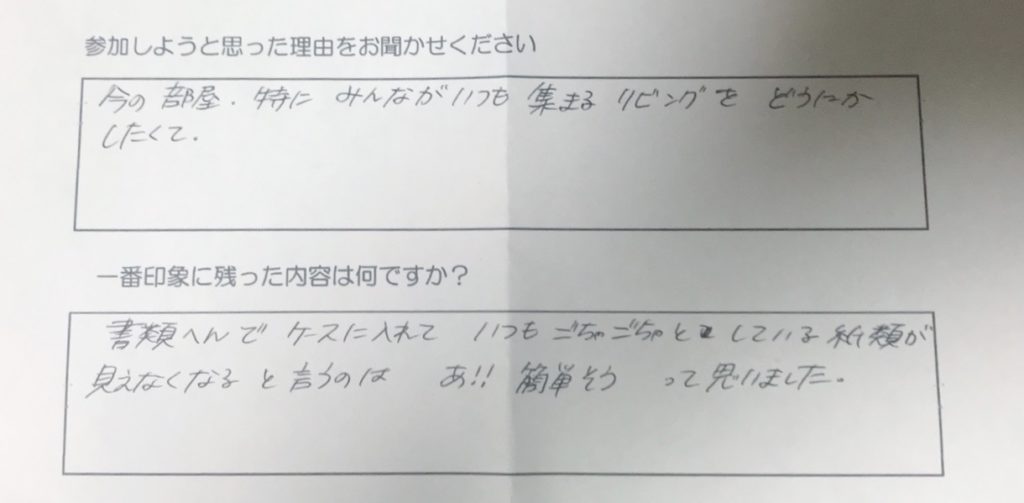 参加しようと思った理由をお聞かせください
今の部屋．特に みんながいつも 集まる リビングを どうにか
したくて．
一番印象に残った内容は何ですか？
書類へんで ケースに入れて いつも ごちゃごちゃと している 紙類が
見えなくなる と 言うのは あ!! 簡単そう って 思いました．